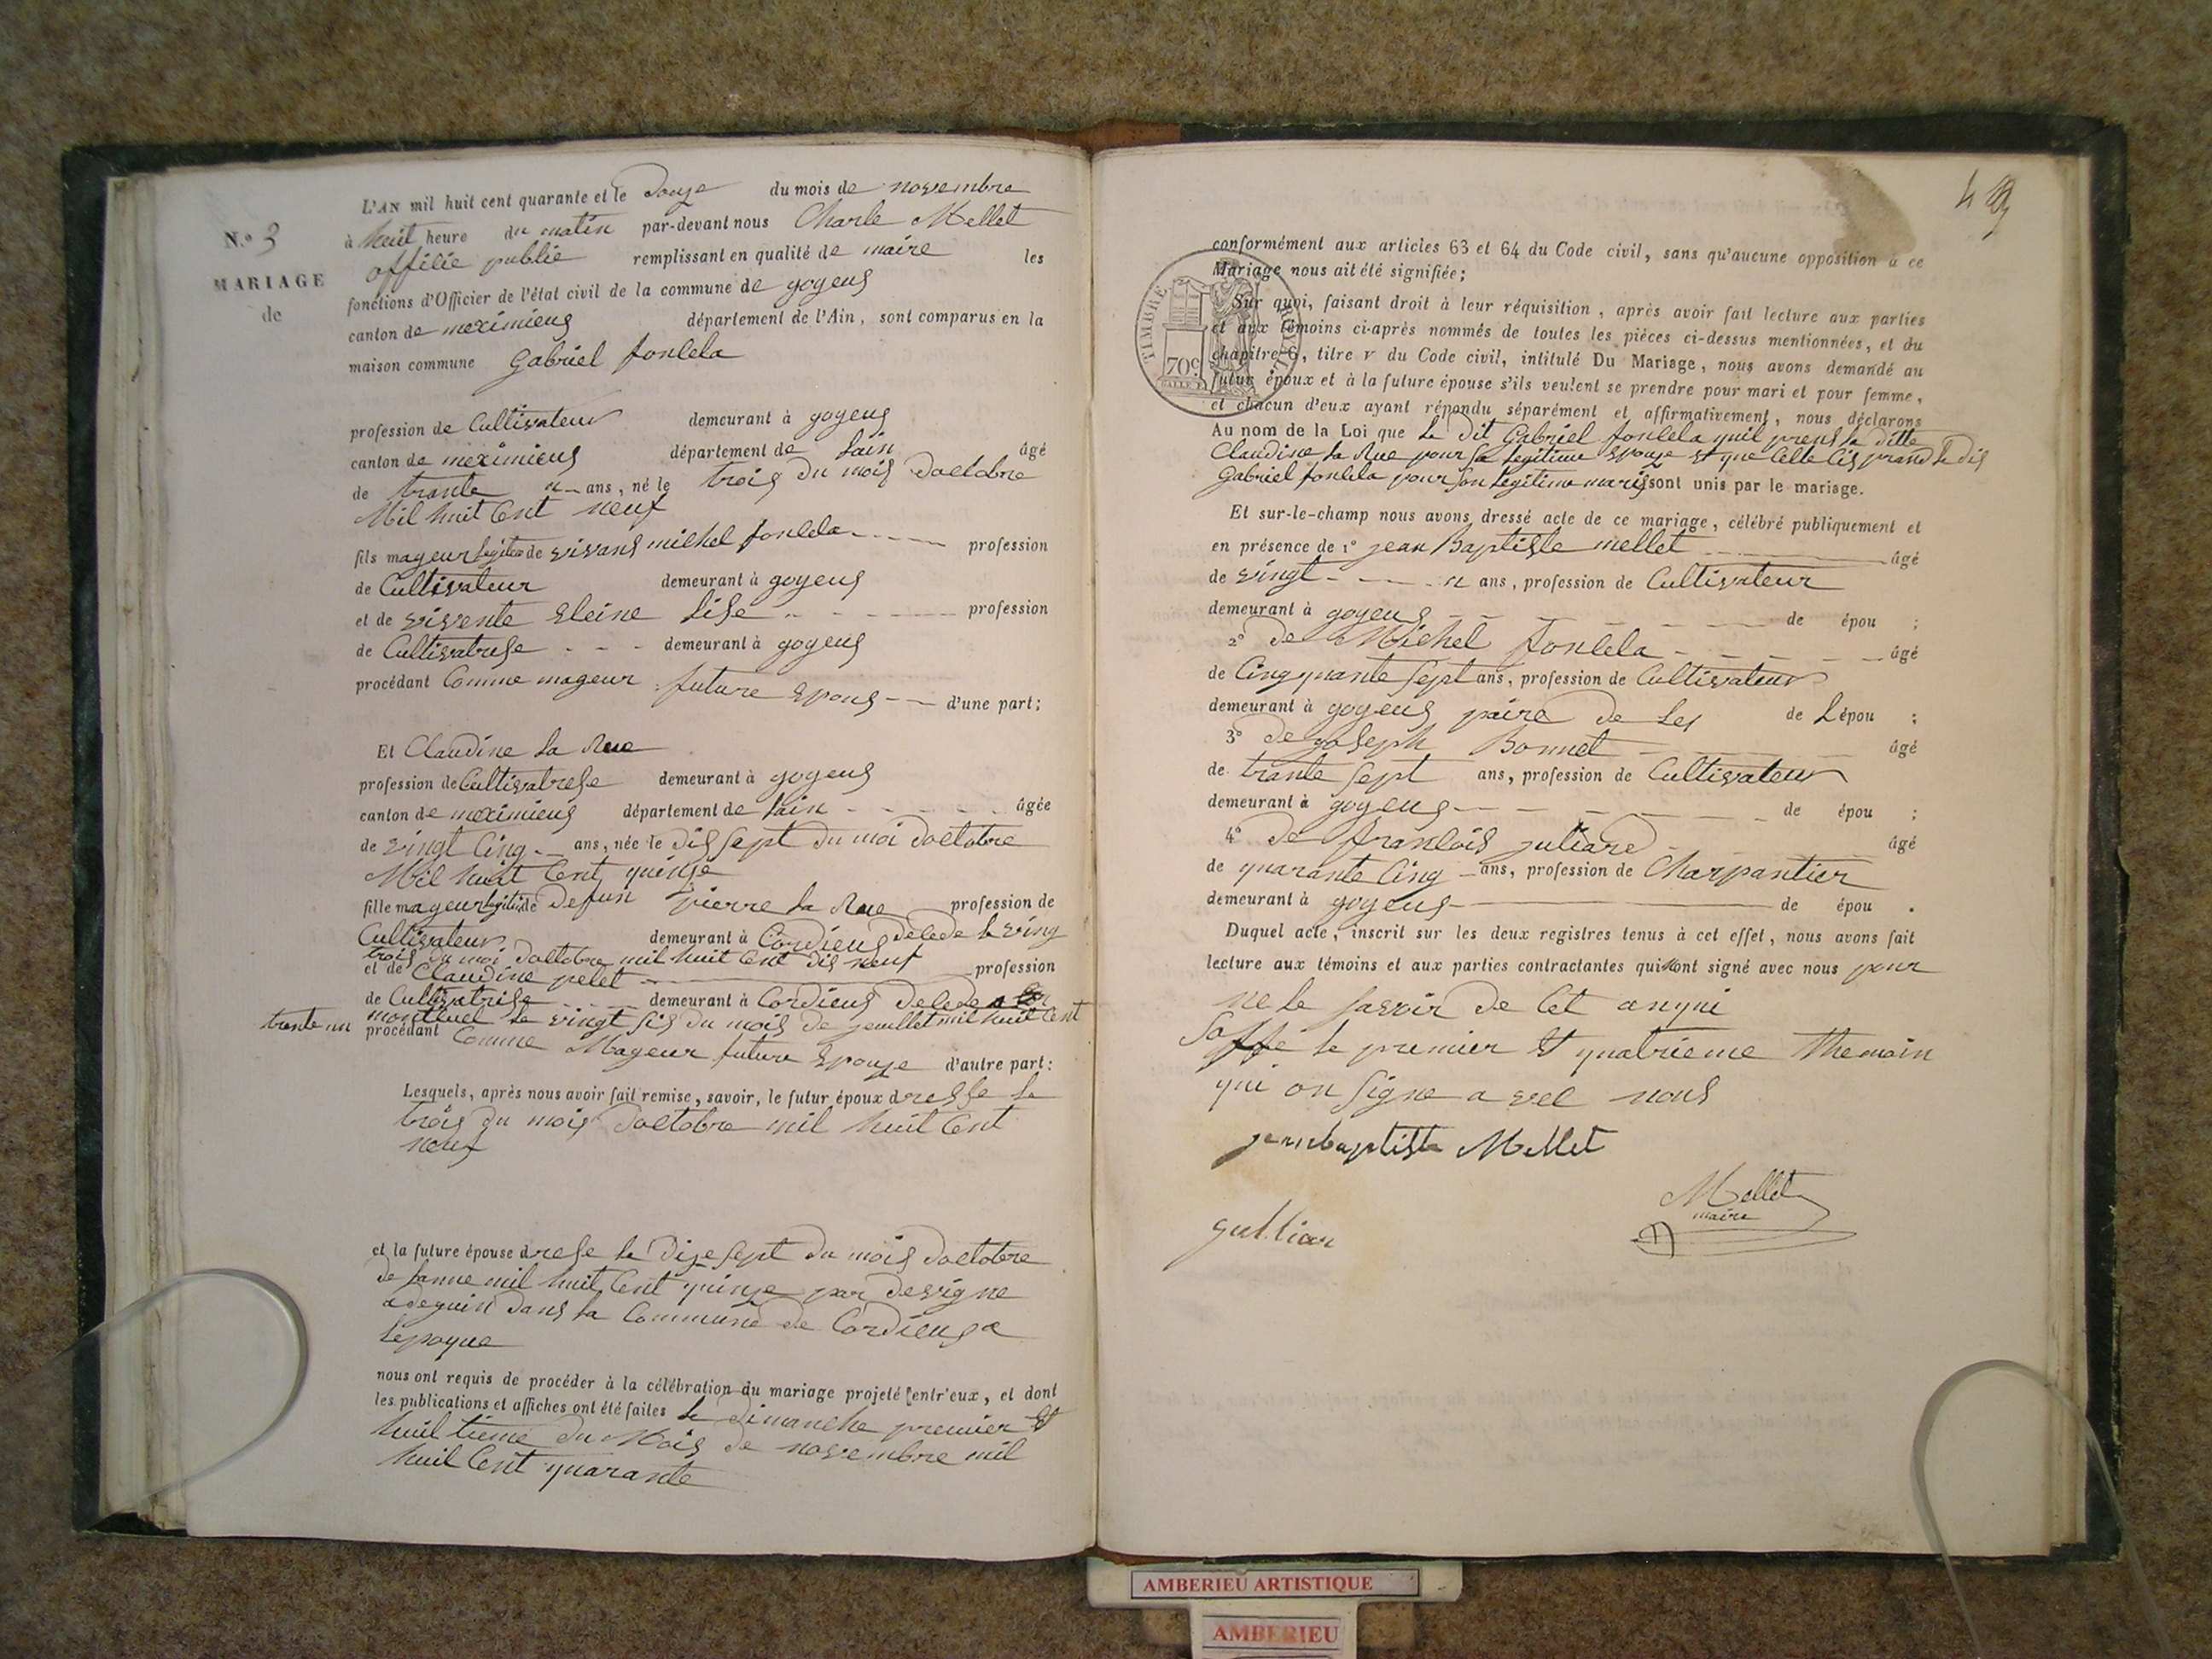 N.o 3
MARIAGE
de
L'AN mil huit cent quarante et le Douze du mois de novembre
à huit heure du matin par-devant nous Charle Mellet
offisié publie remplissant en qualité de maire les
fonctions d'Officier de l'état civil de la commune de goyeus
canton de meximieus département de l'Ain, sont comparus en la
maison commune Gabriel fonlela
profession de Cultivateur demeurant à goyeus
canton de meximieus département de Lain âgé
de trante ans, né le trois du mois doctobre
Mil huit Cent neuf
fils mageur legitime de vivans michel fonlela profession
de Cultivateur demeurant à goyeus
et de vivente Eleine Lise profession
de Cultivatrese demeurant à goyeus
procédant Comme mageur future Epous d'une part;
Et Claudine La Rue
profession de Cultivatrese demeurant à goyeus
canton de meximieus département de Lain âgée
de vingt Cinq ans, née le dis sept du moi doctobre
Mil huit Cent quinze
fille mageur legitime de Defun pierre La Rue profession de
Cultivateur demeurant à Cordieus decede le ving
trois du moi doctobre mil huit Cent dis neuf
et de Claudine pelet profession
de Cultivatrise demeurant à Cordieus decede a
montluel le vingt sis du mois de jeuillet mil huit Cent
trente un procédant Comme Mageur future Epouze d'autre part:
Lesquels, après nous avoir fait remise, savoir, le futur époux dresse le
trois du mois doctobre mil huit Cent
neuf
et la future épouse drese le Dize sept du mois doctobre
de Lanne mil huit Cent quinze par devigne
adequin dans la Commune de Cordieus a
Lepoque
nous ont requis de procéder à la célébration du mariage projeté entr'eux, et dont
les publications et affiches ont été faites le dimanche premier Et
huil tieme du Mois de novembre mil
huil Cent quarante
conformément aux articles 63 et 64 du Code civil, sans qu'aucune opposition à ce
Mariage nous ait été signifiée;
Sur quoi, faisant droit à leur réquisition, après avoir fait lecture aux parties
et aux témoins ci-après nommés de toutes les pièces ci-dessus mentionnées, et du
chapitre 6, titre v du Code civil, intitulé Du Mariage, nous avons demandé au
futur époux et à la future épouse s'ils veulent se prendre pour mari et pour femme,
et chacun d'eux ayant répondu séparément et affirmativement, nous déclarons
TIMBRE
70c
Au nom de la Loi que Le Dit Gabriel fonlela quil prens la ditte
Claudine La Rue pour sa Legitime Epouze Et que Celle Cis prand le dis
Gabriel fonlela pour son Legitime maris sont unis par le mariage.
Et sur-le-champ nous avons dressé acte de ce mariage, célébré publiquement et
en présence de 1o jean Baptiste mellet âgé
de vingt ans, profession de Cultivateur
demeurant à goyeus de épou ;
2o de Michel fonlela âgé
de Cinq quante sept ans, profession de Cultivateur
demeurant à goyeus paire de Lex de Lépou ;
3o de joseph Bonnet âgé
de trante sept ans, profession de Cultivateur
demeurant à goyeus de épou ;
4o de franlois juliard âgé
de quarante Cinq ans, profession de Charpantier
demeurant à goyeus de épou .
Duquel acte, inscrit sur les deux registres tenus à cet effet, nous avons fait
lecture aux témoins et aux parties contractantes qui nont signé avec nous pour
ne le savoir de Cet anqui
Soffé le premier Et quatrieme themoin
qui on signe a vec nous
jeanbaptiste Mellet
Mellet
maire
gulliar
AMBERIEU ARTISTIQUE
AMBERIEU